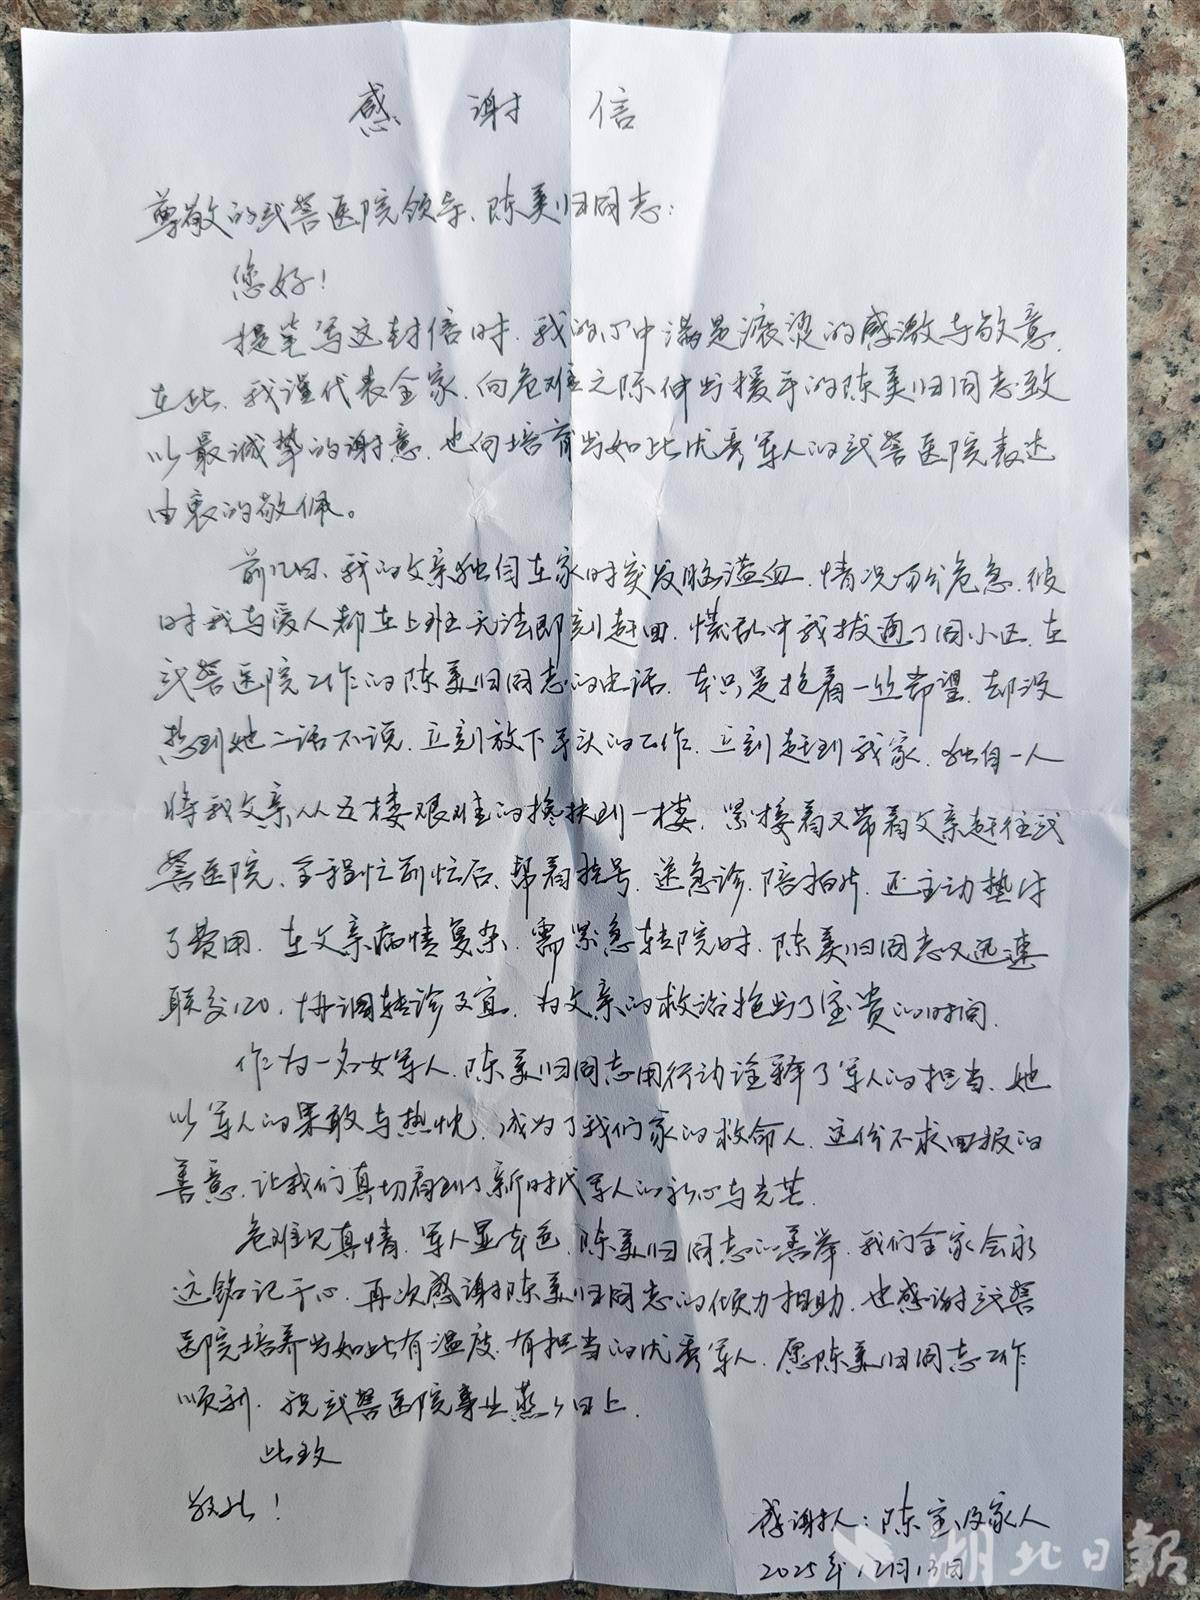 感谢信
尊敬的武警医院领导、陈美归同志:
您好!
提笔写这封信时,我的心中满是滚烫的感激与敬意,
在此,我谨代表全家,向危难之际伸出援手的陈美归同志致
以最诚挚的谢意,也向培育出如此优秀军人的武警医院表达
由衷的敬佩。
前几日,我的父亲独自在家时突发脑溢血,情况万分危急,彼
时我与爱人都在上班无法即刻赶回,慌乱中我拔通了同小区、在
武警医院工作的陈美归同志的电话,本只是抱着一丝希望,却没
想到她二话不说,立刻放下手头的工作,立刻赶到我家,独自一人
将我父亲从五楼艰难的搀扶到一楼,紧接着又带着父亲赶往武
警医院,全程忙前忙后,帮着挂号、送急诊、陪拍片,还主动垫付
了费用,在父亲病情复杂,需紧急转院时,陈美归同志又迅速
联系120,协调转诊事宜,为父亲的救治抢出了宝贵的时间.
作为一名女军人,陈美归同志用行动诠释了军人的担当,她
以军人的果敢与热忱,成为了我们家的救命人,这份不求回报的
善意,让我们真切看到了新时代军人的初心与光芒.
危难见真情,军人显本色,陈美归同志的善举,我们全家会永
远铭记于心,再次感谢陈美归同志的倾力相助,也感谢武警
医院培养出如此有温度、有担当的优秀军人,愿陈美归同志工作
顺利,祝武警医院事业蒸々日上.
此致
敬礼!
感谢人:陈 及家人
2025年12月13日
湖北日报